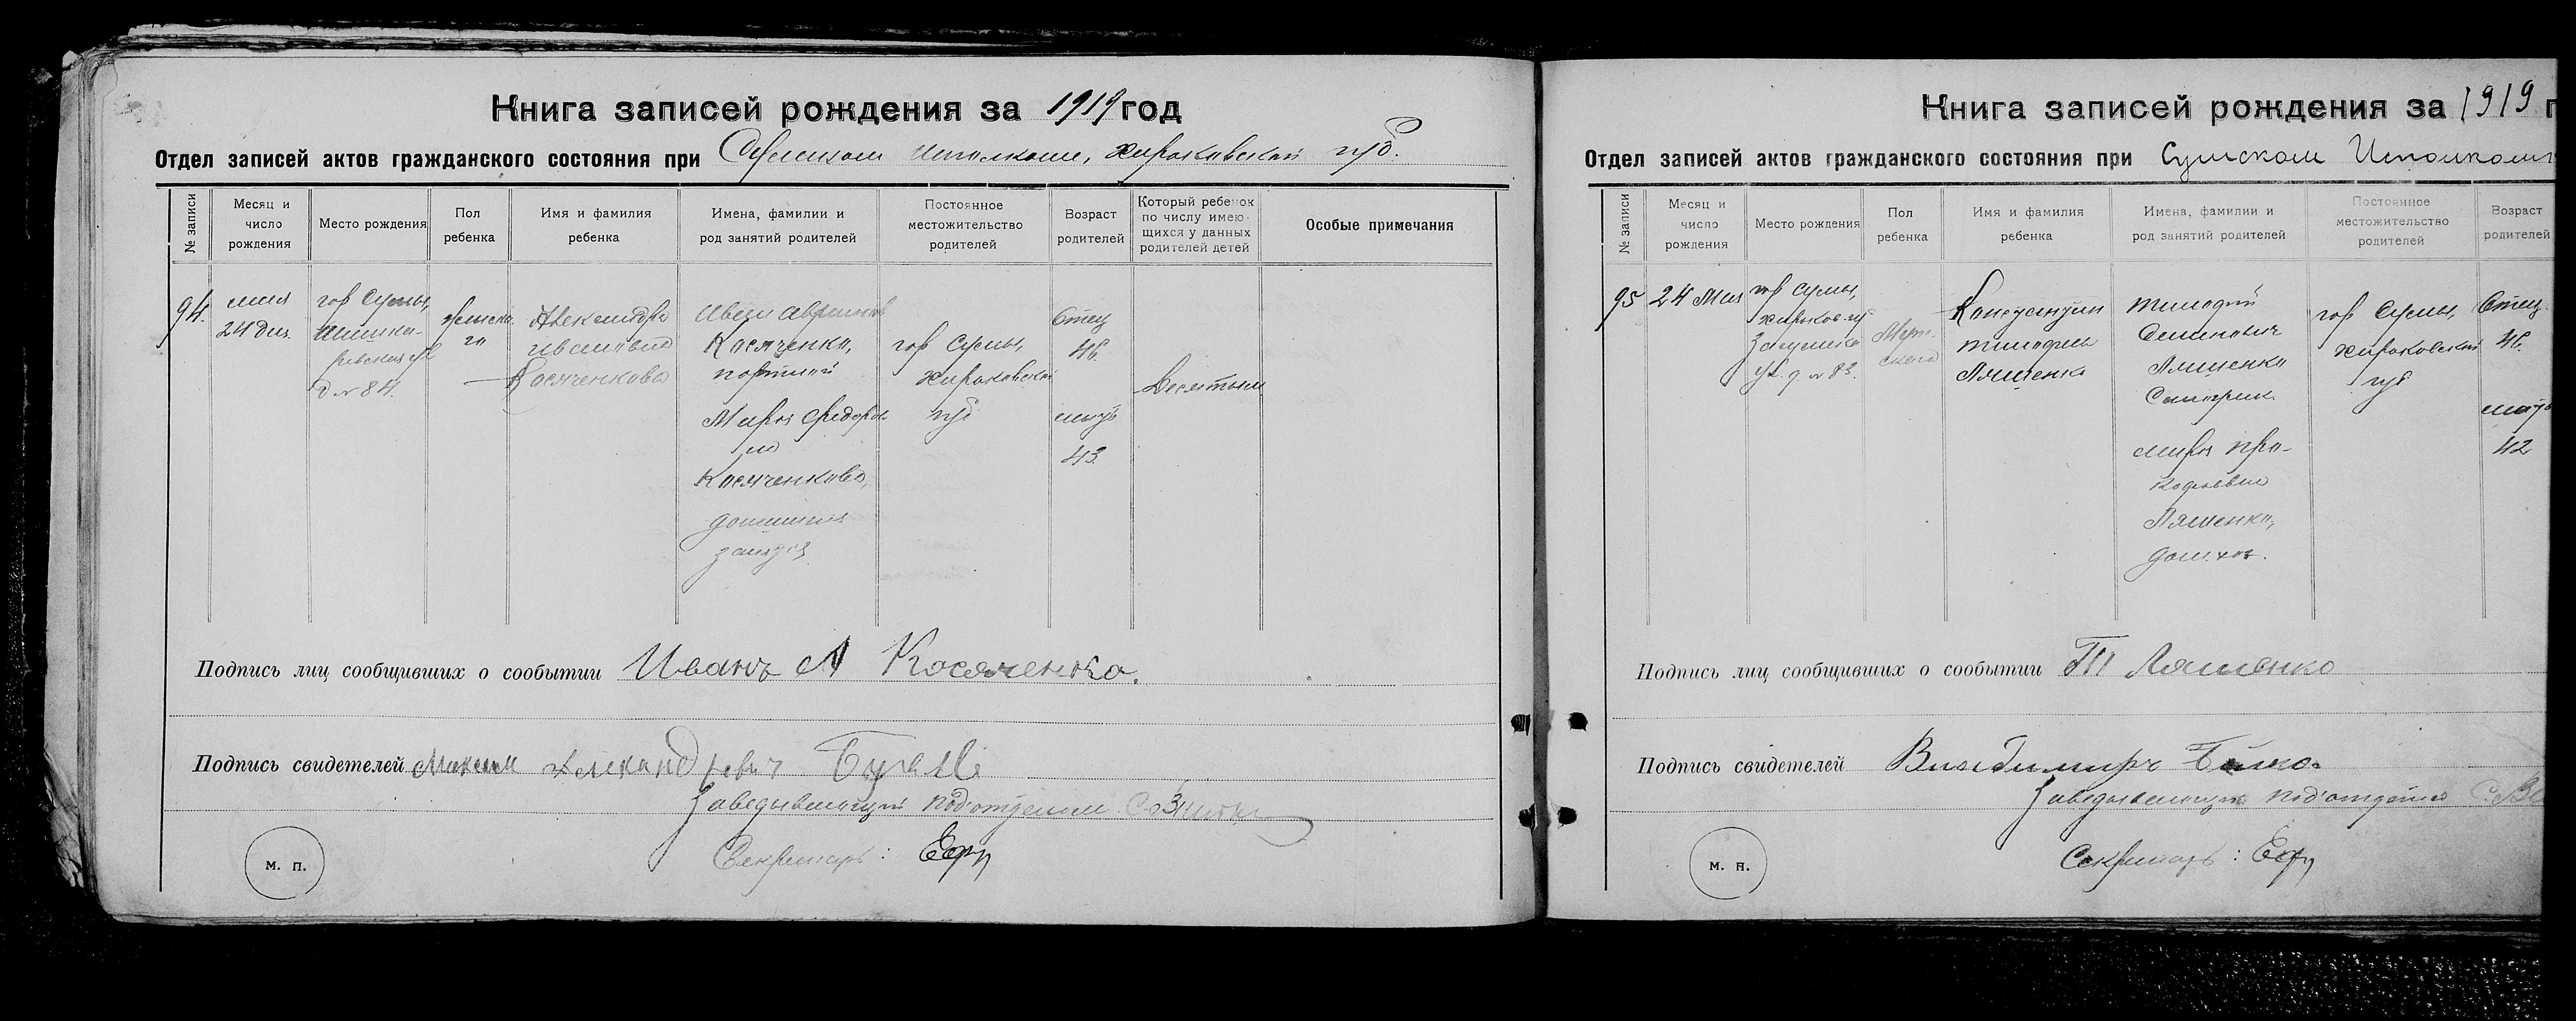 Книга записей рождения за 1919 год
Отдел записей актов гражданского состояния при Сумском Исполкоме, Харьковской губ.
№ записи
Месяц и число рождения
Место рождения
Пол ребенка
Имя и фамилия ребенка
Имена, фамилии и род занятий родителей
Постоянное местожительство родителей
Возраст родителей
Который ребенок по числу имеющихся у данных родителей детей
Особые примечания
94.
мая
24 дня.
гор Сумы,
д № 84.
женска
го
Александра
Ивановна
Косяченкова
Иван Абрамов
Косяченко,
портной
Мария Федоров
на
Косяченкова,
домашния
занятия
гор Сумы,
Харьковской
губ
Отец
46.
мать
43.
Десятым
Подпись лиц сообщивших о сообытии Иванъ А Косяченко.
Подпись свидетелей Максим Александрович
Заведывающий подотделом
Секретарь:
М. П.
Книга записей рождения за 1919 г
Отдел записей актов гражданского состояния при Сумском Исполкоме
№ записи
Месяц и число рождения
Место рождения
Пол ребенка
Имя и фамилия ребенка
Имена, фамилии и род занятий родителей
Постоянное местожительство родителей
Возраст родителей
95
24 Мая
гор Сумы,
Харьков. гу
ул. д. № 83.
Муж-
ского
Константин
Тимофеев
Ляшенко
Тимофей
Семенович
Ляшенко
Мария Про-
кофьевна
Ляшенко,
дом. хоз.
гор Сумы,
Харьковской
губ
Отец
46.
мать
42
Подпись лиц сообщивших о сообытии Т Ляшенко
Подпись свидетелей Владимиръ Бойко.
Заведывающий подотделом
Секретарь:
М. П.